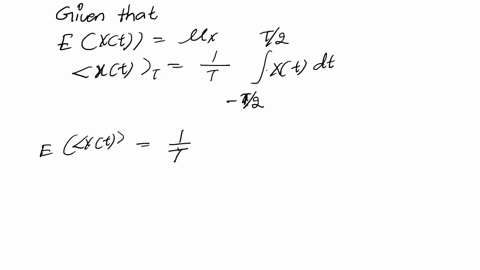 Given that
E (X(t)) = μx
<x(t)>T = 1/T ∫ X(t) dt T/2 -T/2
E (<x(t)> = 1/T